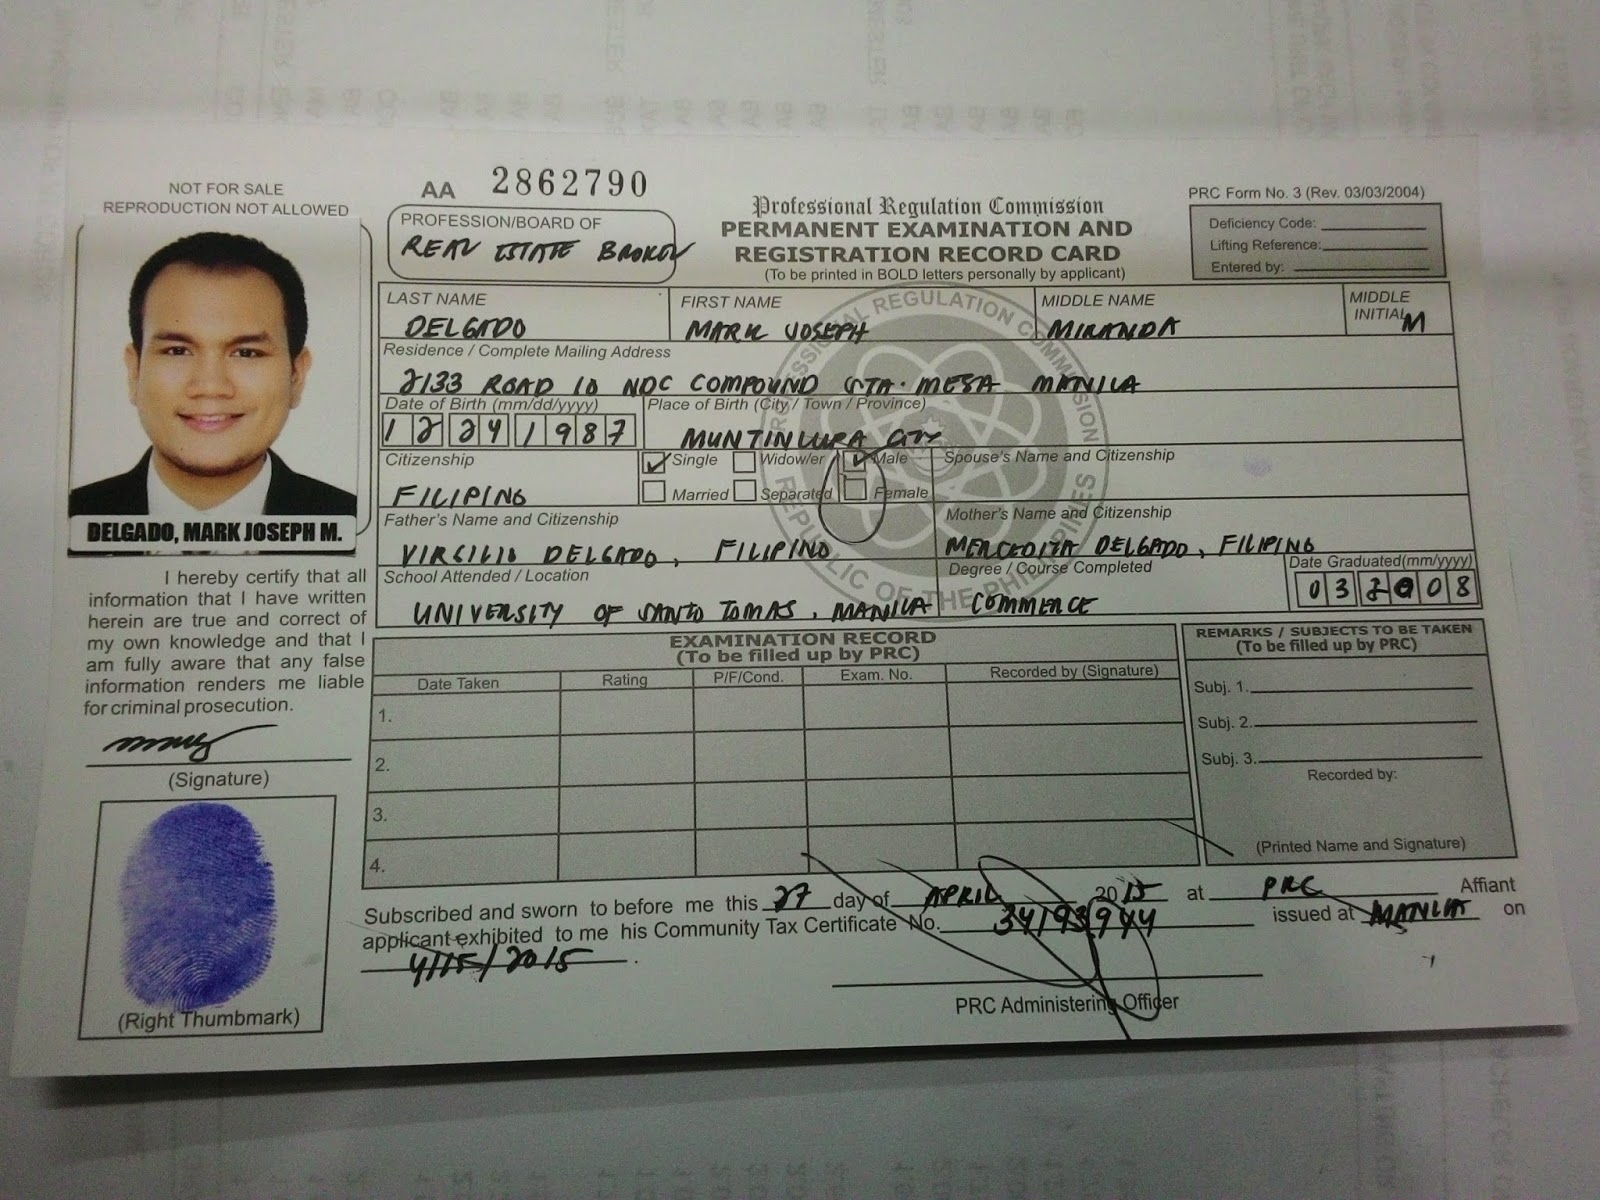 NOT FOR SALE
REPRODUCTION NOT ALLOWED
AA 2862790
PROFESSION/BOARD OF
REAL ESTATE BROKER
Professional Regulation Commission
PERMANENT EXAMINATION AND
REGISTRATION RECORD CARD
(To be printed in BOLD letters personally by applicant)
PRC Form No. 3 (Rev. 03/03/2004)
Deficiency Code:
Lifting Reference:
Entered by:
LAST NAME FIRST NAME MIDDLE NAME MIDDLE INITIAL
DELGADO MARK JOSEPH MIRANDA M
Residence / Complete Mailing Address
2133 ROAD 10 NDC COMPOUND STA. MESA MANILA
Date of Birth (mm/dd/yyyy) Place of Birth (City / Town / Province)
12 24 1987 MUNTINLUPA CITY
Citizenship Single Widow/er Male Spouse's Name and Citizenship
FILIPINO Married Separated Female
Father's Name and Citizenship Mother's Name and Citizenship
VIRGILIO DELGADO, FILIPINO MERCEDITA DELGADO, FILIPINO
School Attended / Location Degree / Course Completed Date Graduated(mm/yyyy)
UNIVERSITY OF SANTO TOMAS, MANILA COMMERCE 03 2008
PROFESSIONAL REGULATION COMMISSION
REPUBLIC OF THE PHILIPPINES
DELGADO, MARK JOSEPH M.
I hereby certify that all
information that I have written
herein are true and correct of
my own knowledge and that I
am fully aware that any false
information renders me liable
for criminal prosecution.
(Signature)
(Right Thumbmark)
EXAMINATION RECORD
(To be filled up by PRC)
Date Taken Rating P/F/Cond. Exam. No. Recorded by (Signature)
1.
2.
3.
4.
REMARKS / SUBJECTS TO BE TAKEN
(To be filled up by PRC)
Subj. 1.
Subj. 2.
Subj. 3.
Recorded by:
(Printed Name and Signature)
Subscribed and sworn to before me this 27 day of APRIL 2015 at PRC Affiant
applicant exhibited to me his Community Tax Certificate No. 34193944 issued at MANILA on
4/15/2015.
PRC Administering Officer